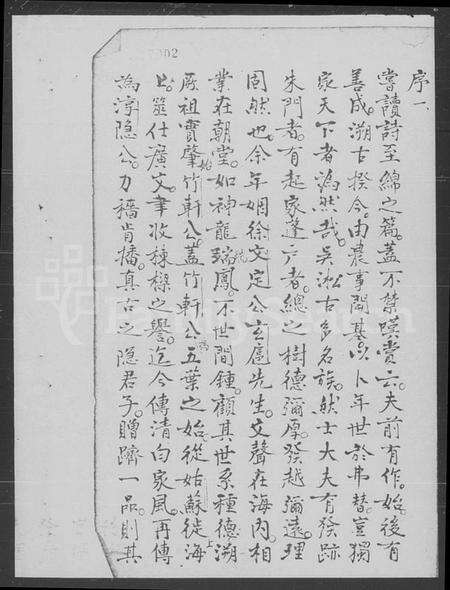 序一
嘗讀詩至綿之篇。蓋不禁嘆賞云。夫前有作。始後有
善成。溯古揆今。由農事開基。以卜年世於弗替。豈獨
家天下者為然哉。吳淞古多名族。然士大夫有發跡
朱門者。有起家蓬戶者。總之樹德彌厚。發越彌遠。理
固然也。余年姻徐文定公玄扈先生。文聲在海內。相
業在朝堂。如神龍瑞鳳。不世間鍾。顧其世系種德。溯
厥祖實肇竹軒公。蓋竹軒公五葉之始。從姑蘇徙海
上。筮仕廣文。聿收棫樸之譽。迄今傳清白家風。再傳
為淳隱公。力穡肯播。真古之隱君子。贈躋一品。則其
002
FamilySearch